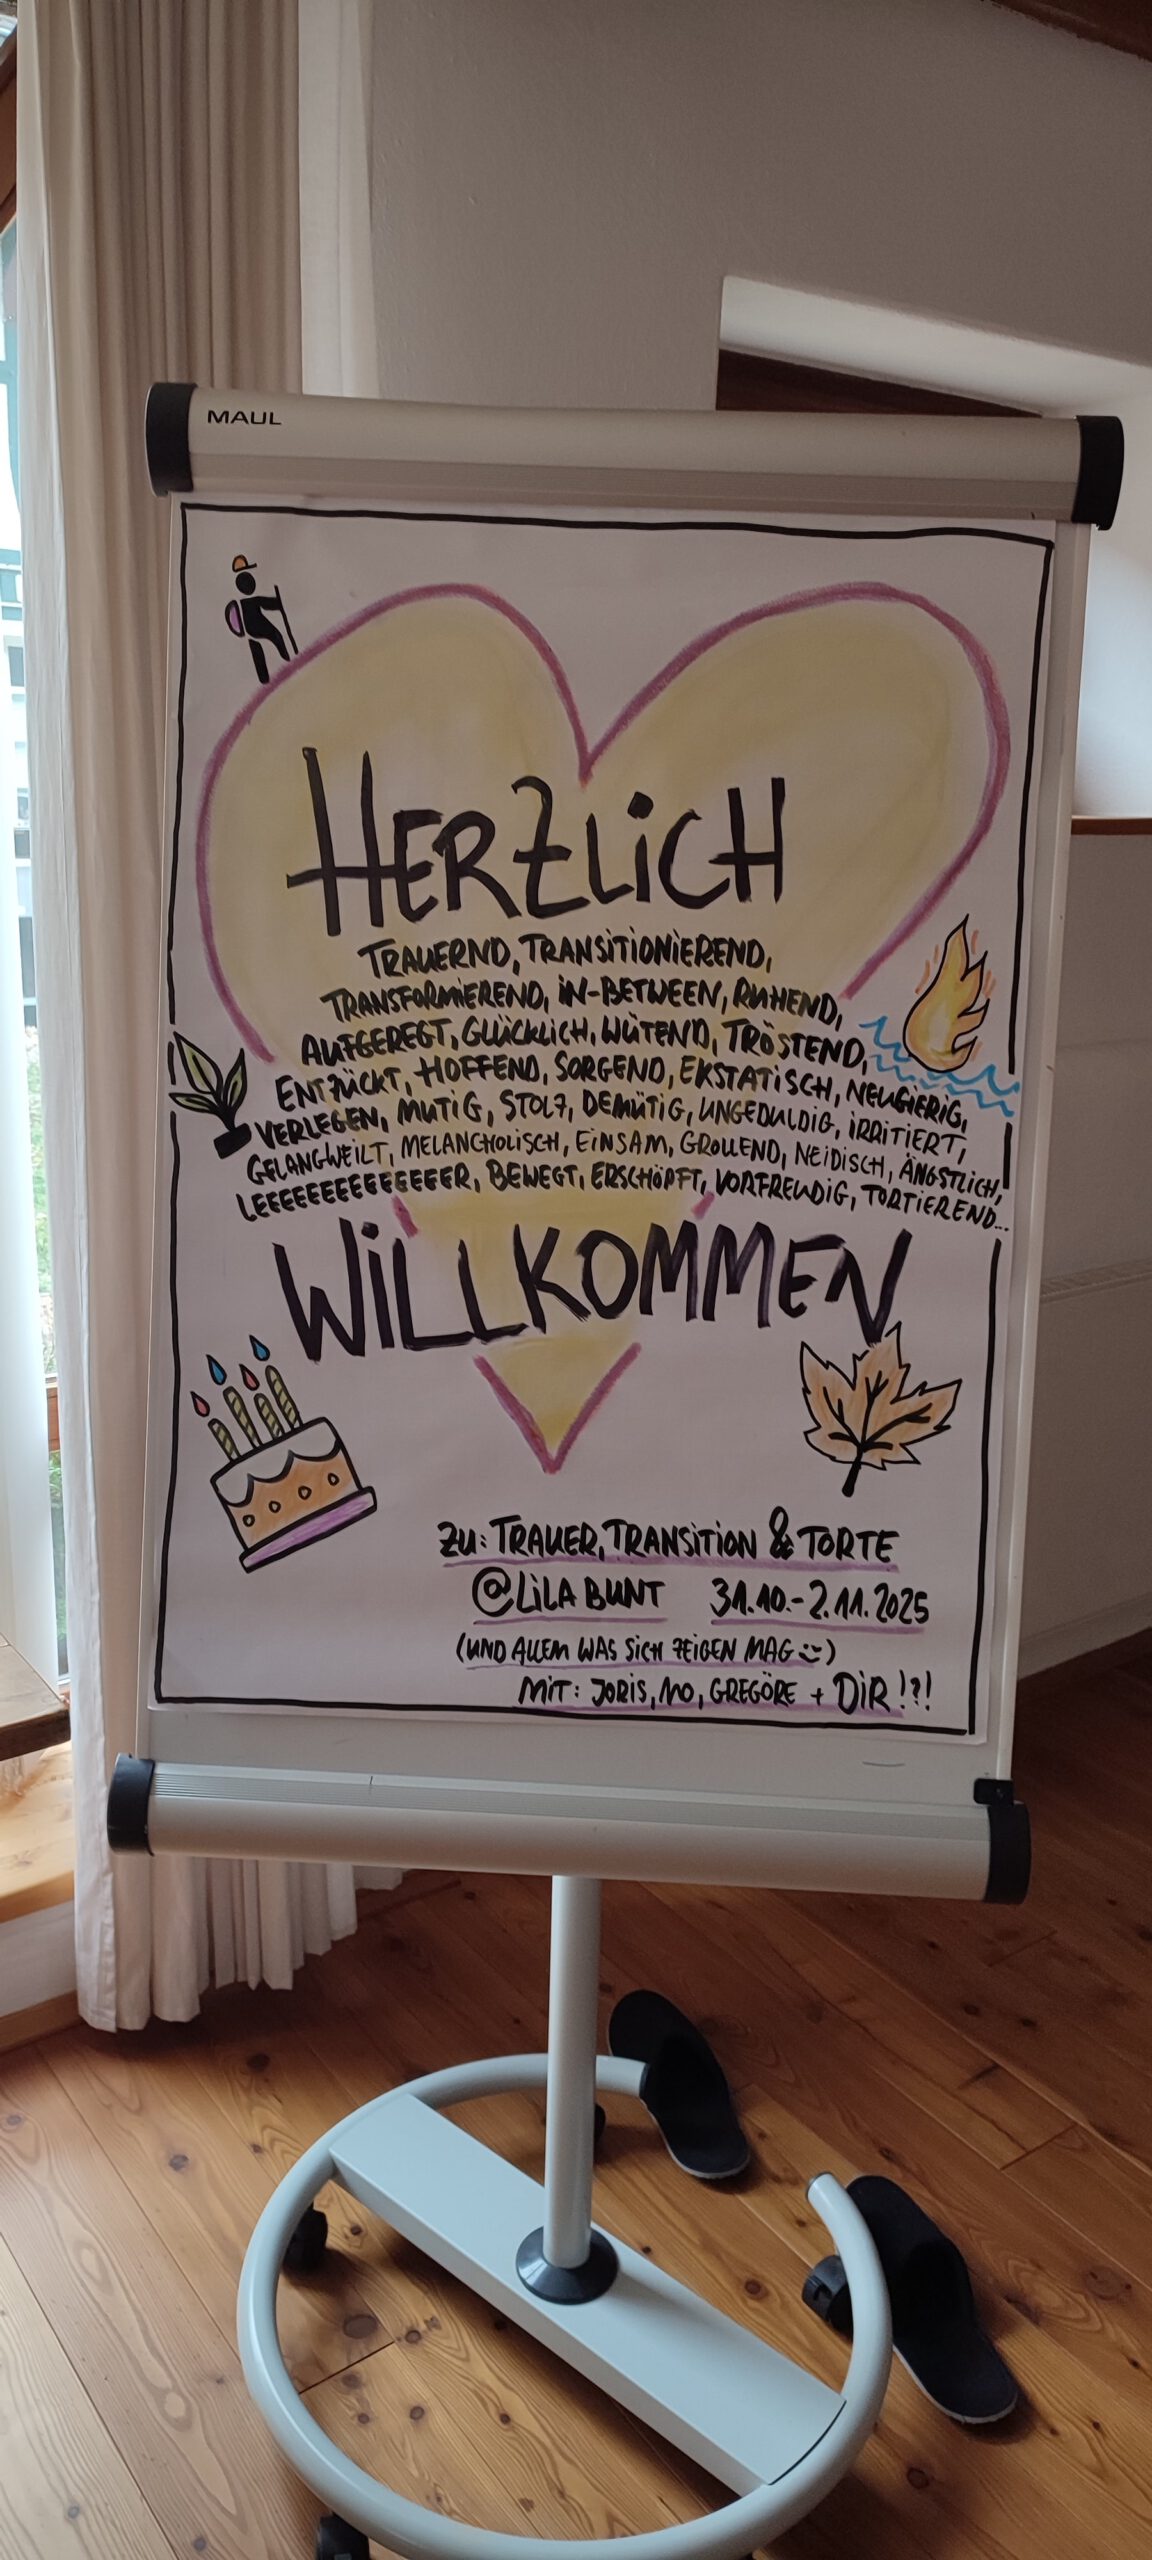 MAUL
HERZLICH
TRAUERND, TRANSITIONIEREND,
TRANSFORMIEREND, IN-BETWEEN, RUHEND,
AUFGEREGT, GLÜCKLICH, WÜTEND, TRÖSTEND,
ENTZÜCKT, HOFFEND, SORGEND, EKSTATISCH, NEUGIERIG,
VERLEGEN, MUTIG, STOLZ, DEMÜTIG, UNGEDULDIG, IRRITIERT,
GELANGWEILT, MELANCHOLISCH, EINSAM, GROLLEND, NEIDISCH, ÄNGSTLICH,
LEEEEEEEEEEEEEER, BEWEGT, ERSCHÖPFT, VORFREUDIG, TORTIEREND...
WILLKOMMEN
ZU: TRAUER, TRANSITION & TORTE
@LILA BUNT 31.10.-2.11.2025
(UND ALLEM WAS SICH ZEIGEN MAG :))
MIT: JORIS, MO, GREGÖRE + DIR!?!